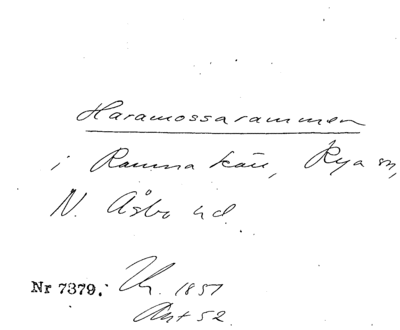 Haramossarammen
i Ramna kärr, Rya sn,
N. Åsbo hd.
Nr 7379. 1851
Ant 52